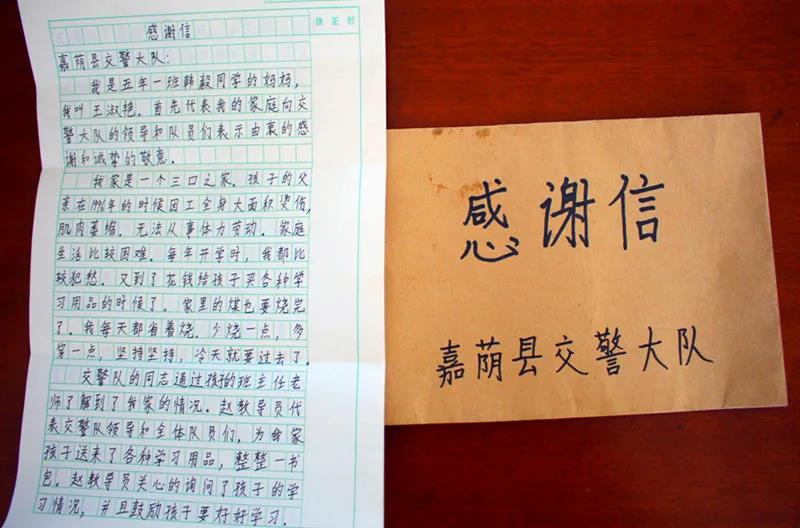 修正栏
感谢信
嘉荫县交警大队:
我是五年一班韩毅同学的妈妈,
我叫王淑艳。首先代表我的家庭向交
警大队的领导和队员们表示由衷的感
谢和诚挚的敬意。
我家是一个三口之家。孩子的父
亲在1996年的时候因工全身大面积烫伤,
肌肉萎缩。无法从事体力劳动。家庭
生活比较困难。每年开学时,我都比
较犯愁。又到了花钱给孩子买各种学
习用品的时候了。家里的煤也要烧完
了。我每天都省着烧。少烧一点,多
穿一点,坚持坚持,冷天就要过去了。
交警队的同志通过孩子的班主任老
师了解到了我家的情况。赵教导员代
表交警队领导和全体队员们,为我家
孩子送来了各种学习用品,整整一书
包。赵教导员关心的询问了孩子的学
习情况,并且鼓励孩子要好好学习。
感谢信
嘉荫县交警大队